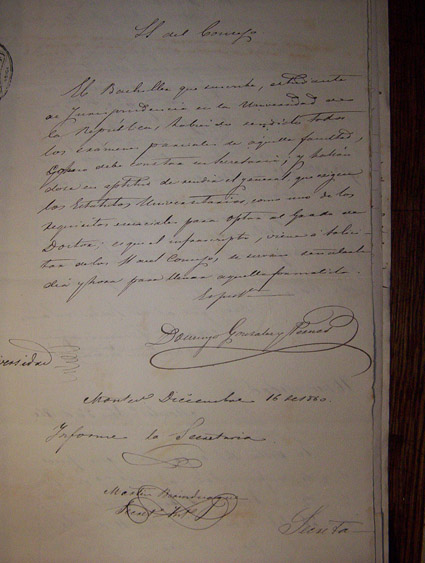 SS. del Consejo
El Bachiller que suscribe, estudiante
de Jurisprudencia en la Universidad de
la República, habiendo rendido todos
los exámenes parciales de aquella facultad,
como debe constar en Secretaría; y hallán
dose en aptitud de rendir el general que exigen
los Estatutos Universitarios, como uno de los
requisitos esenciales para optar al Grado de
Doctor; es que el infrascripto, viene a solici-
tar de los del Consejo, se sirvan señalarle
día y hora para llenar aquella formalita
Domingo Gonzalez
versidad
Montev. Diciembre 16 de 1860.
Informe la Secretaria